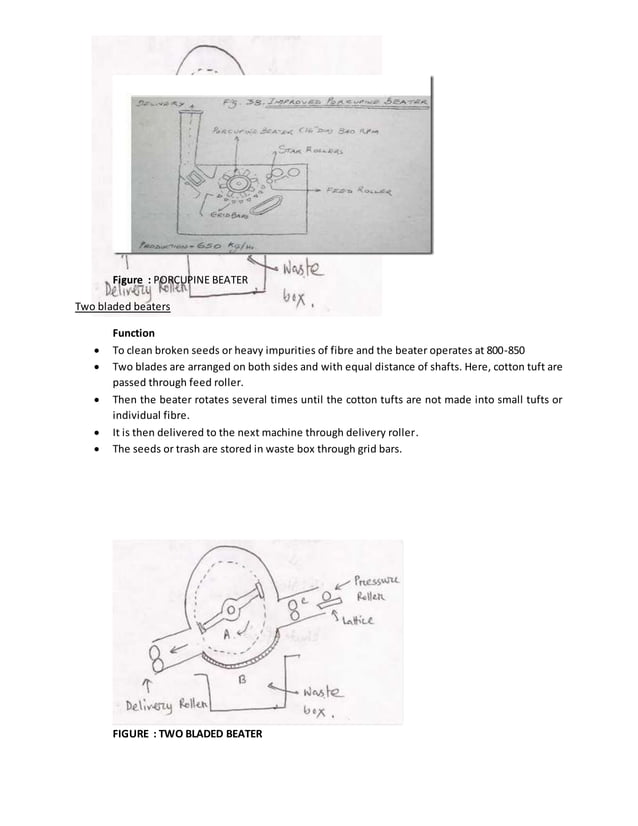 DELIVERY
Fig. 38. IMPROVED PORCUPINE BEATER
PORCUPINE BEATER (16" DIA) 840 RPM
STAR ROLLERS
FEED ROLLER
GRID BARS
PRODUCTION - 650 KG/Hr.
Waste
box.
Delivery Roller
Figure : PORCUPINE BEATER
Two bladed beaters
Function
• To clean broken seeds or heavy impurities of fibre and the beater operates at 800-850
• Two blades are arranged on both sides and with equal distance of shafts. Here, cotton tuft are
passed through feed roller.
• Then the beater rotates several times until the cotton tufts are not made into small tufts or
individual fibre.
• It is then delivered to the next machine through delivery roller.
• The seeds or trash are stored in waste box through grid bars.
Pressure
Roller
c
Lattice
A
B
Waste
box.
Delivery Roller
FIGURE : TWO BLADED BEATER